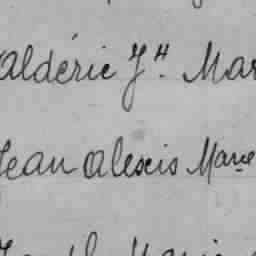 Aldéric Jh. Mar
Jean Alexis Marie